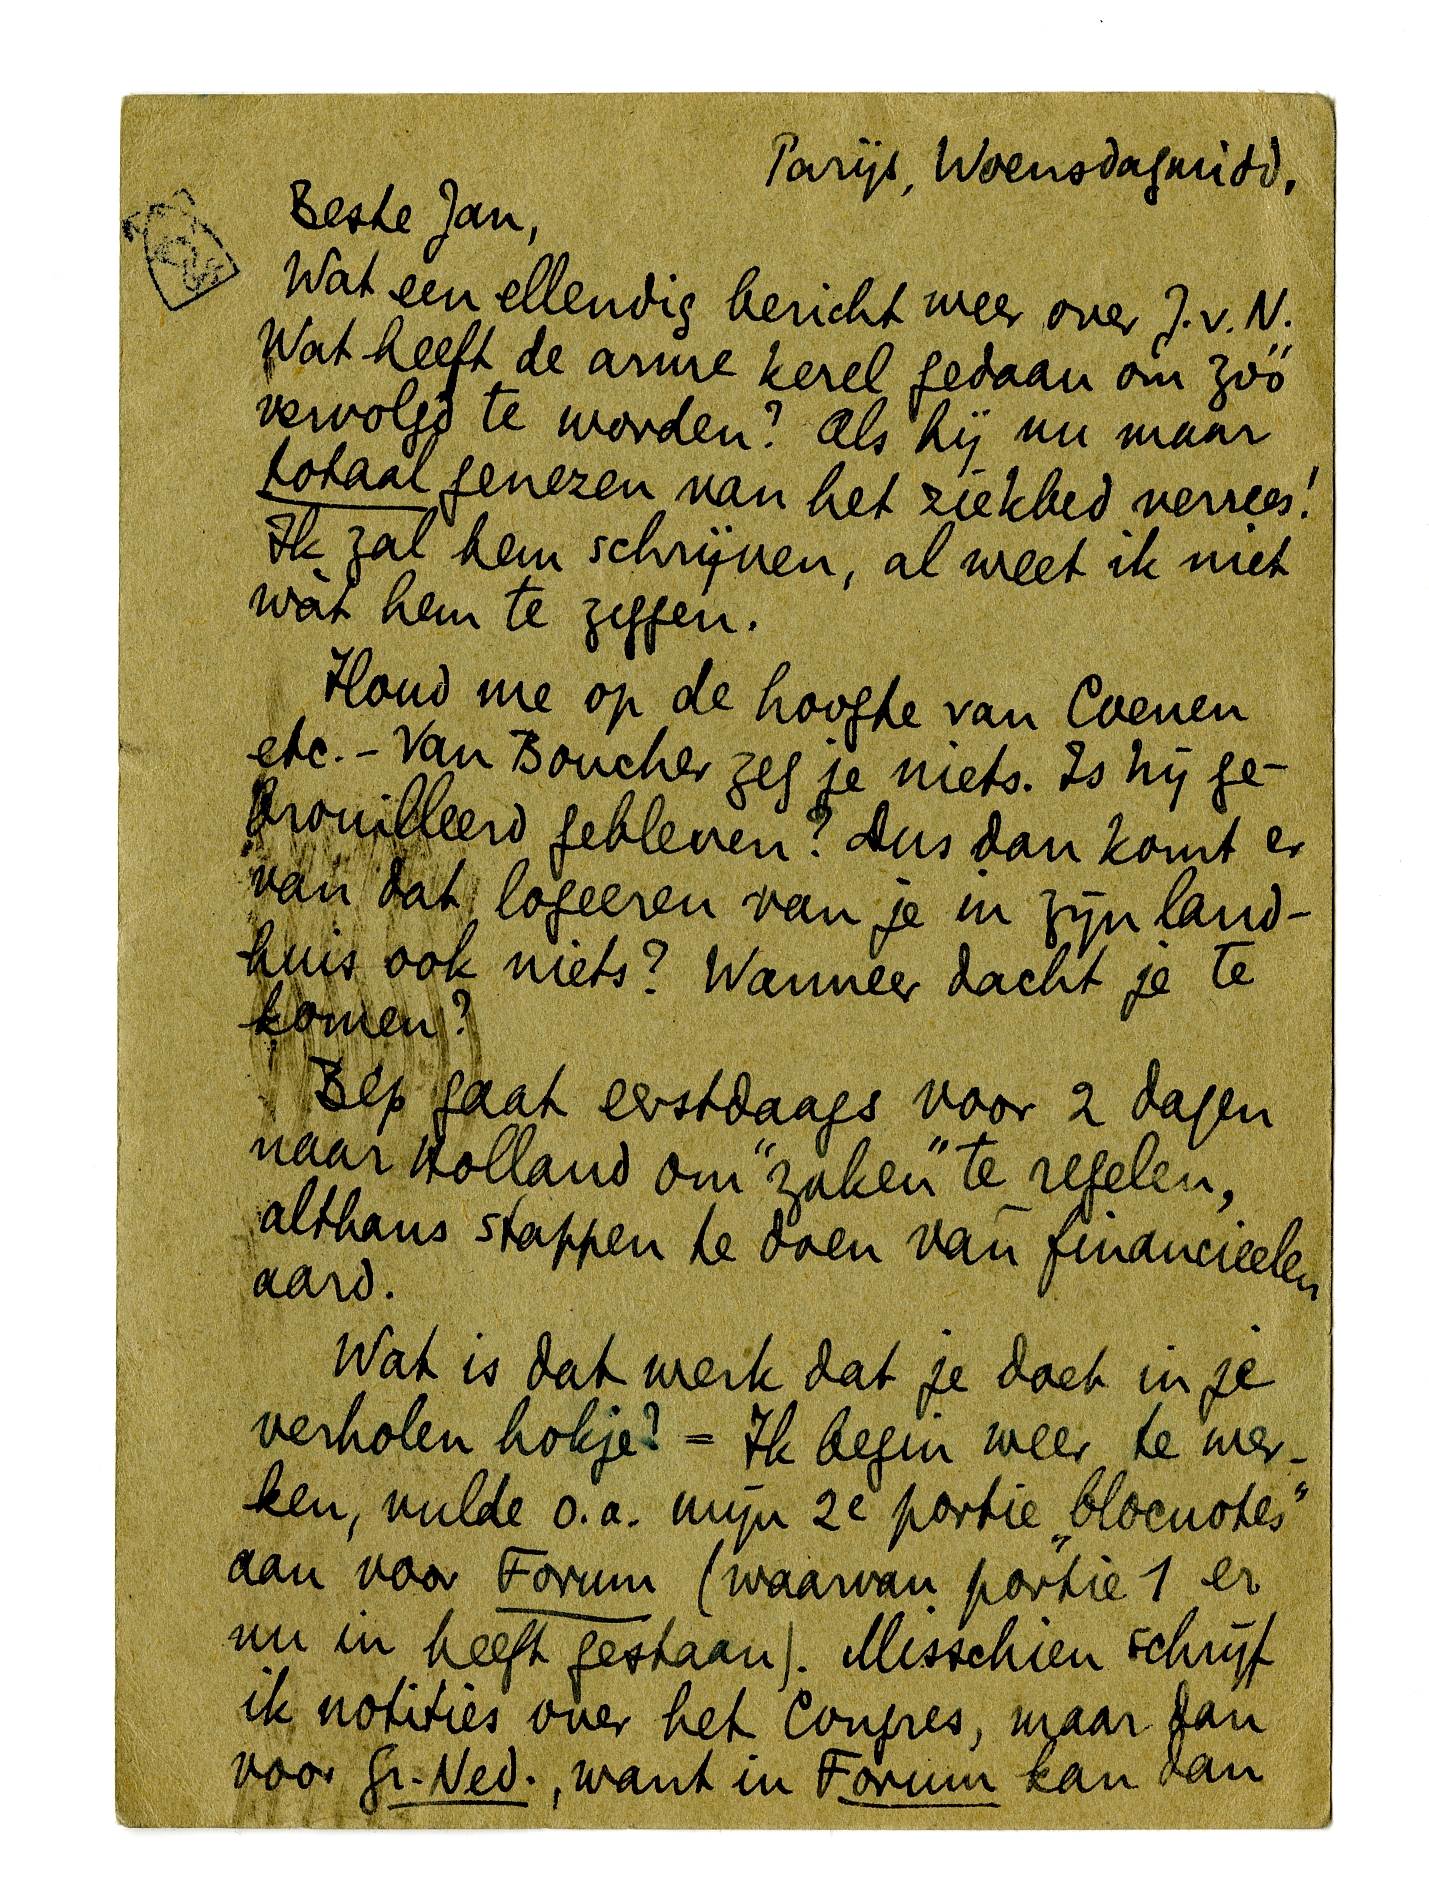 Parijs, Woensdagmidd.
Beste Jan,
Wat een ellendig bericht weer over J. v. N.
Wat heeft de arme kerel gedaan om zóó
vervolgd te worden? Als hij nu maar
totaal genezen van het ziekbed verrees!
Ik zal hem schrijven, al weet ik niet
wàt hem te zeggen.
Houd me op de hoogte van Coenen
etc. – Van Boucher zeg je niets. Is hij ge-
brouilleerd gebleven? Dus dan komt er
van dat logeeren van je in zijn land-
huis ook niets? Wanneer dacht je te
komen?
Bep gaat eerstdaags voor 2 dagen
naar Holland om "zaken" te regelen,
althans stappen te doen van financieelen
aard.
Wat is dat werk dat je doet in je
verholen hokje? = Ik begin weer te wer-
ken, vulde o.a. mijn 2e portie „blocnotes"
aan voor Forum (waarvan portie 1 er
nu in heeft gestaan). Misschien schrijf
ik notities over het Congres, maar dan
voor Gr.-Ned., want in Forum kan dan